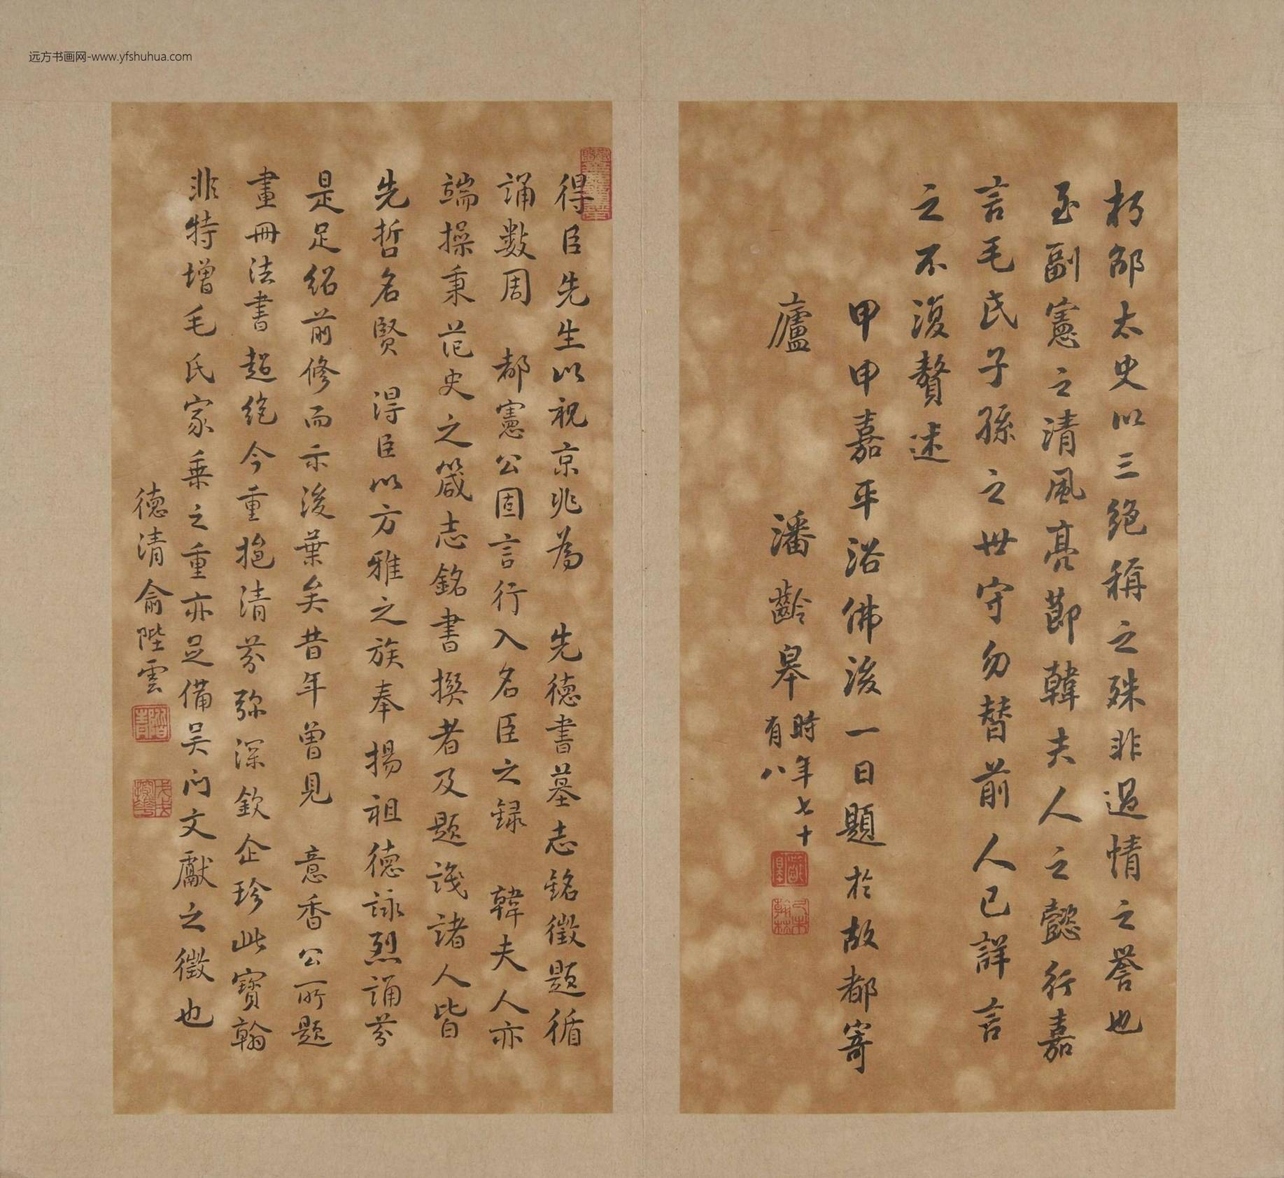 远方书画网-www.yfshuhua.com
朽邰太史以三絕稱之殊非過情之譽也
至副憲之清風亮節韓夫人之懿行嘉
言毛氏子孫之世守勿替前人已詳言
之不復贅述
甲申嘉平浴佛後一日題於故都寄
廬
潘齡皋時年七十
有八
得臣先生以祝京兆為 先德書墓志銘徵題循
誦數周 都憲公固言行入名臣之録 韓夫人亦
端操秉范史之箴志銘書撰者及題識諸人皆
先哲名賢 得臣以方雅之族奉揚祖德詠烈誦芬
是足紹前修而示後葉矣昔年曾見 意香公所題
畫冊法書超絕今重挹清芬弥深欽企珍此寶翰
非特增毛氏家乗之重亦足備吳门文獻之徵也
德清俞陛雲